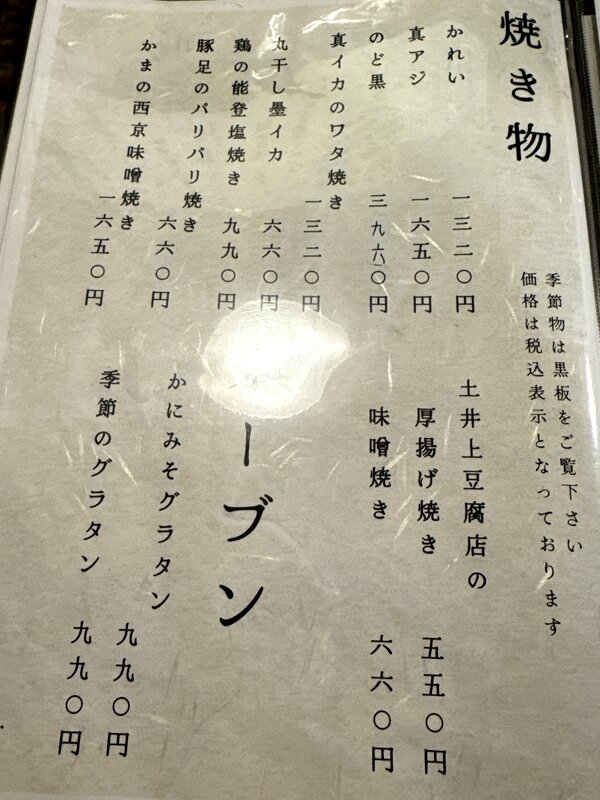 焼き物
季節物は黒板をご覧下さい
価格は税込表示となっております
かれい 一三二〇円
真アジ 一六五〇円
のど黒 三九六〇円
真イカのワタ焼き 一三二〇円
丸干し墨イカ 六六〇円
鶏の能登塩焼き 九九〇円
豚足のパリパリ焼き 六六〇円
かまの西京味噌焼き 一六五〇円
土井上豆腐店の
厚揚げ焼き 五五〇円
味噌焼き 六六〇円
ーブン
かにみそグラタン 九九〇円
季節のグラタン 九九〇円